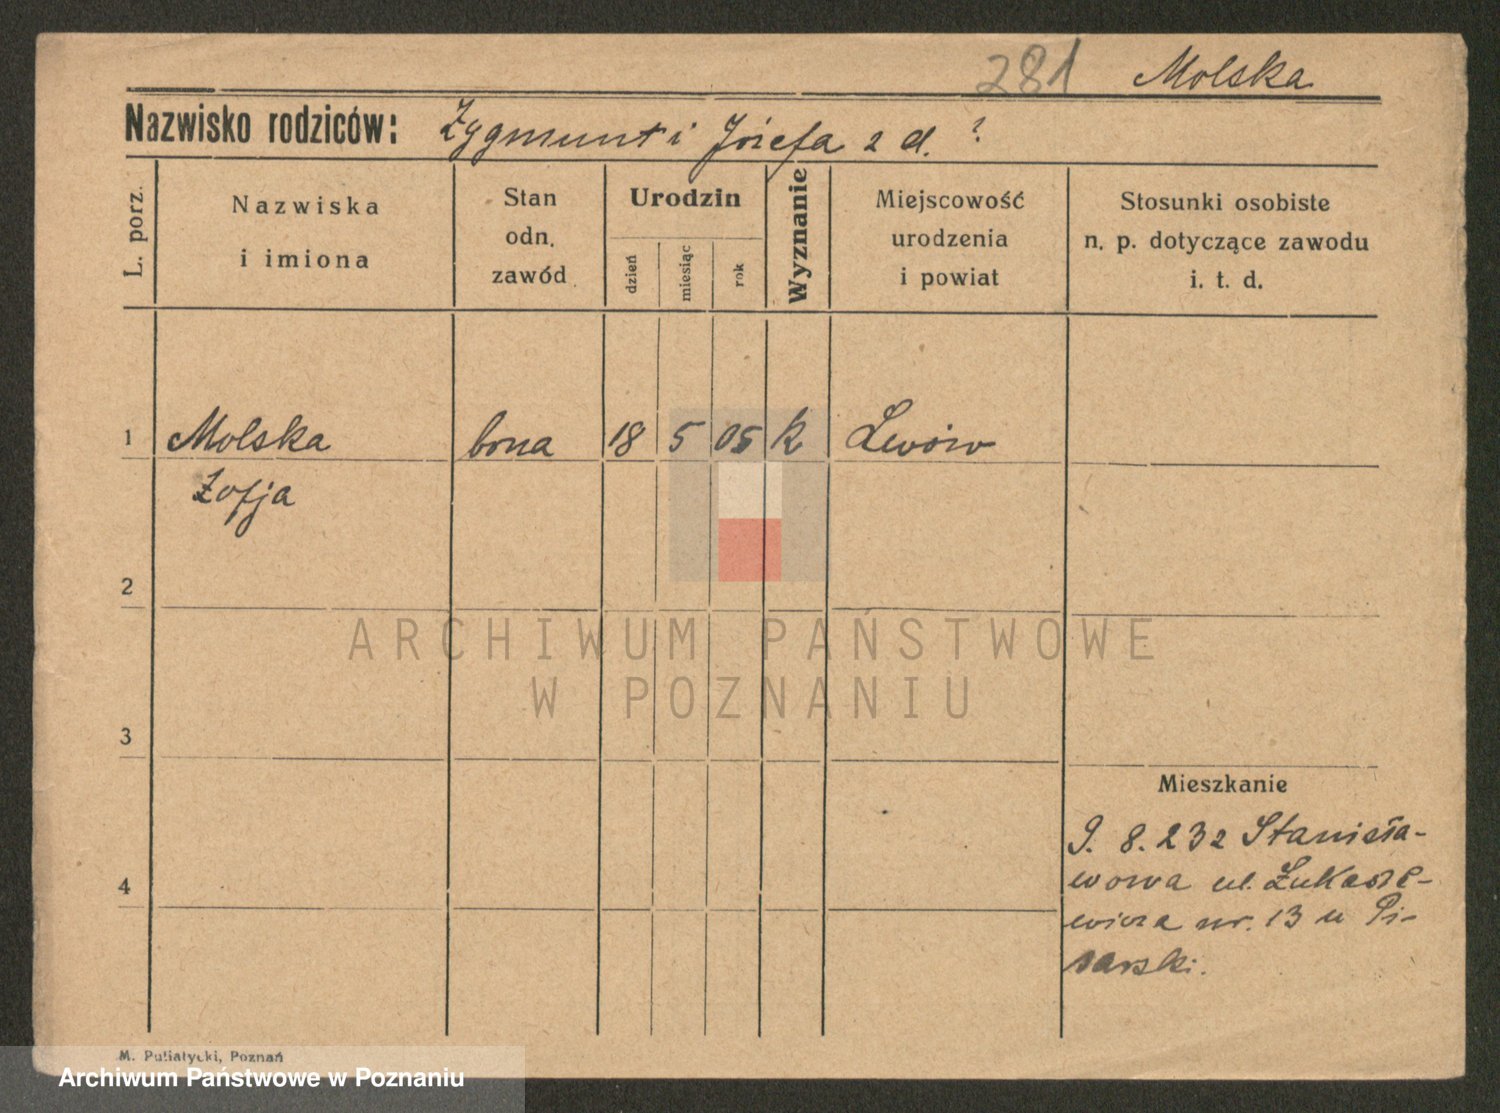 281 Molska
Nazwisko rodziców: Zygmunt i Józefa z d. ?
L. porz.
Nazwiska
i imiona
Stan
odn.
zawód
Urodzin
dzień
miesiąc
rok
Wyznanie
Miejscowość
urodzenia
i powiat
Stosunki osobiste
n. p. dotyczące zawodu
i. t. d.
1 Molska bona 18 5 05 k Lwów
Zofja
2
3
4
Mieszkanie
9. 8. 232 Stanisła-
wowa ul. Łukasze-
wicza nr. 13 u Pi-
sarski.
ARCHIWUM PAŃSTWOWE
W POZNANIU
M. Putiatycki, Poznań
Archiwum Państwowe w Poznaniu